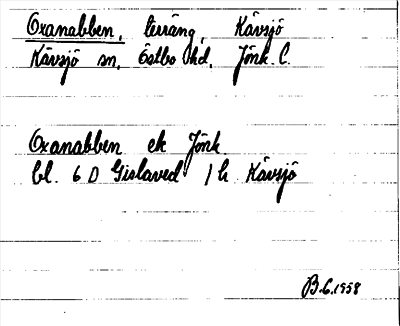 Oxanabben, terräng, Kävsjö
Kävsjö sn. Östbo hd. Jönk. L.
Oxanabben ek Jönk.
bl. 6 D Gislaved 1 h Kävsjö
B.C. 1958